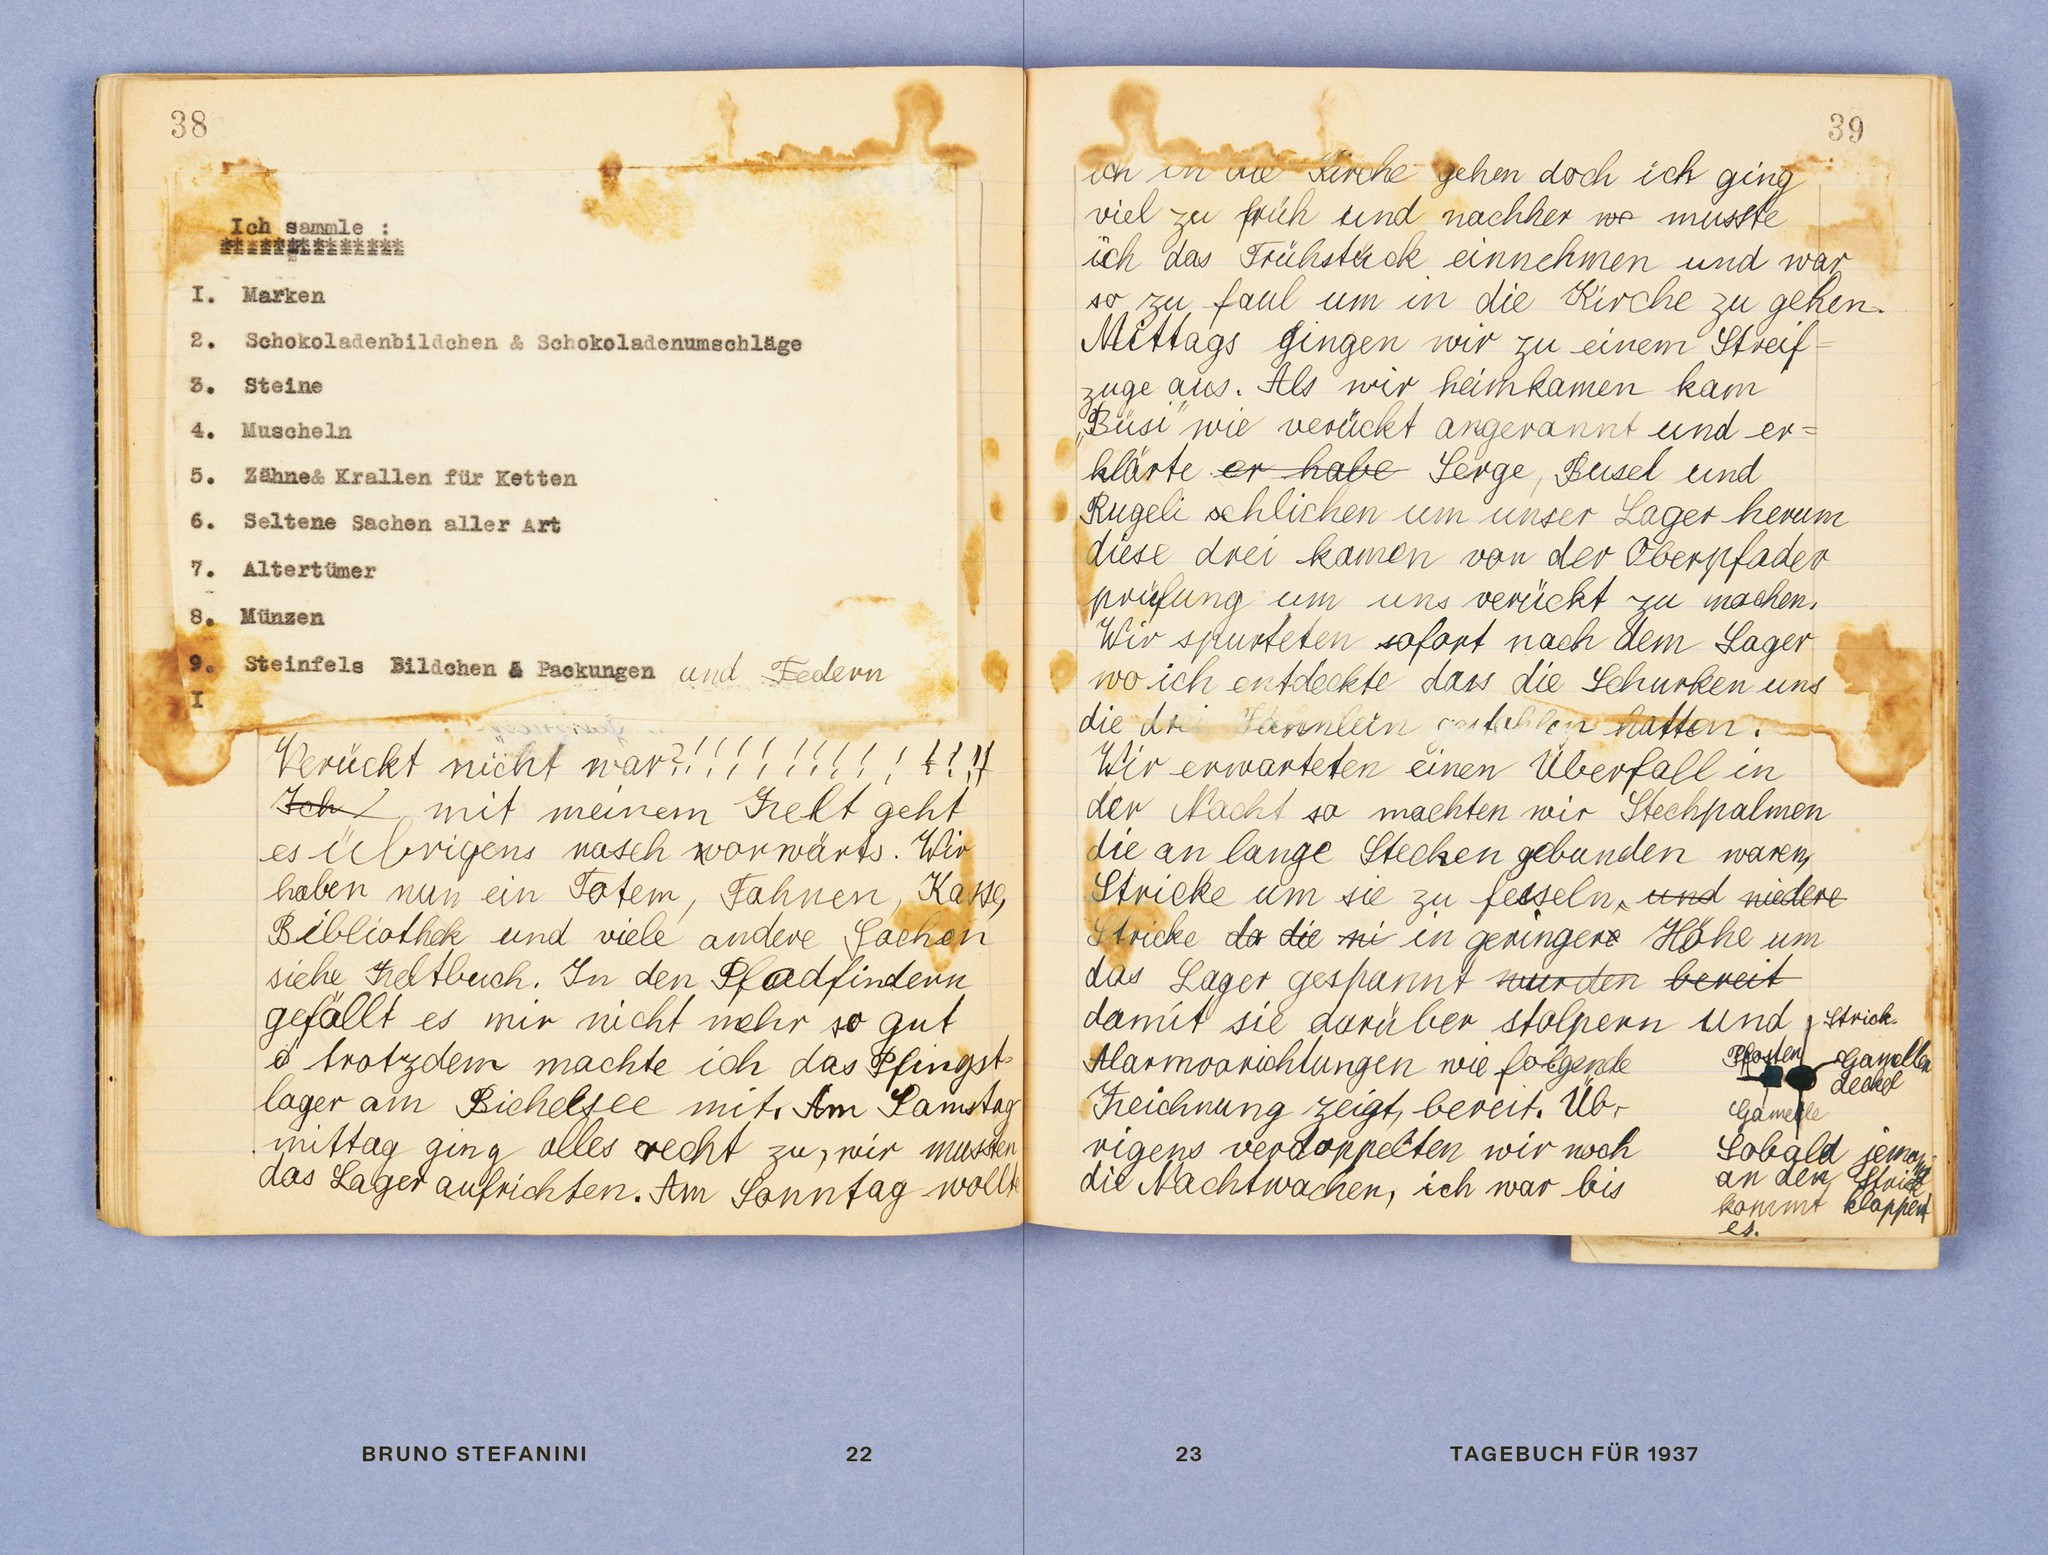 38
Ich sammle :
**************
I. Marken
2. Schokoladenbildchen & Schokoladenumschläge
3. Steine
4. Muscheln
5. Zähne& Krallen für Ketten
6. Seltene Sachen aller Art
7. Altertümer
8. Münzen
9. Steinfels Bildchen & Packungen und Federn
I
Verückt nicht war?!!!!!!!!!!!!!
Ich mit meinem Zelt geht
es übrigens rasch vorwärts. Wir
haben nun ein Totem, Fahnen, Kasse,
Bibliothek und viele andere Sachen
siehe Zeltbuch. In den Pfadfindern
gefällt es mir nicht mehr so gut
trotzdem machte ich das Pfingst-
lager am Bichelsee mit. Am Samstag
mittag ging alles recht zu, wir mussten
das Lager aufrichten. Am Sonntag wollte
39
ich in die Kirche gehen doch ich ging
viel zu früh und nachher wo musste
ich das Frühstück einnehmen und war
so zu faul um in die Kirche zu gehen.
Mittags gingen wir zu einem Streif=
zuge aus. Als wir heimkamen kam
„Büsi" wie verückt angerannt und er=
klärte er habe Serge, Busel und
Rugeli schlichen um unser Lager herum
diese drei kamen von der Oberpfader
prüfung um uns verückt zu machen.
Wir spurteten sofort nach dem Lager
wo ich entdeckte dass die Schurken uns
die drei Fähnlein gestohlen hatten.
Wir erwarteten einen Überfall in
der Nacht so machten wir Stechpalmen
die an lange Stecken gebunden waren,
Stricke um sie zu fesseln, und niedere
Stricke da die ni in geringere Höhe um
das Lager gespannt wurden bereit
damit sie darüber stolpern und
Alarmvorichtungen wie folgende
Zeichnung zeigt, bereit. Üb-
rigens verdoppelten wir noch
die Nachtwachen, ich war bis
Strick
Pfosten
Gamellen
deckel
Gamelle
Sobald jemand
an den Strick
kommt klappert
es.
BRUNO STEFANINI 22
23 TAGEBUCH FÜR 1937